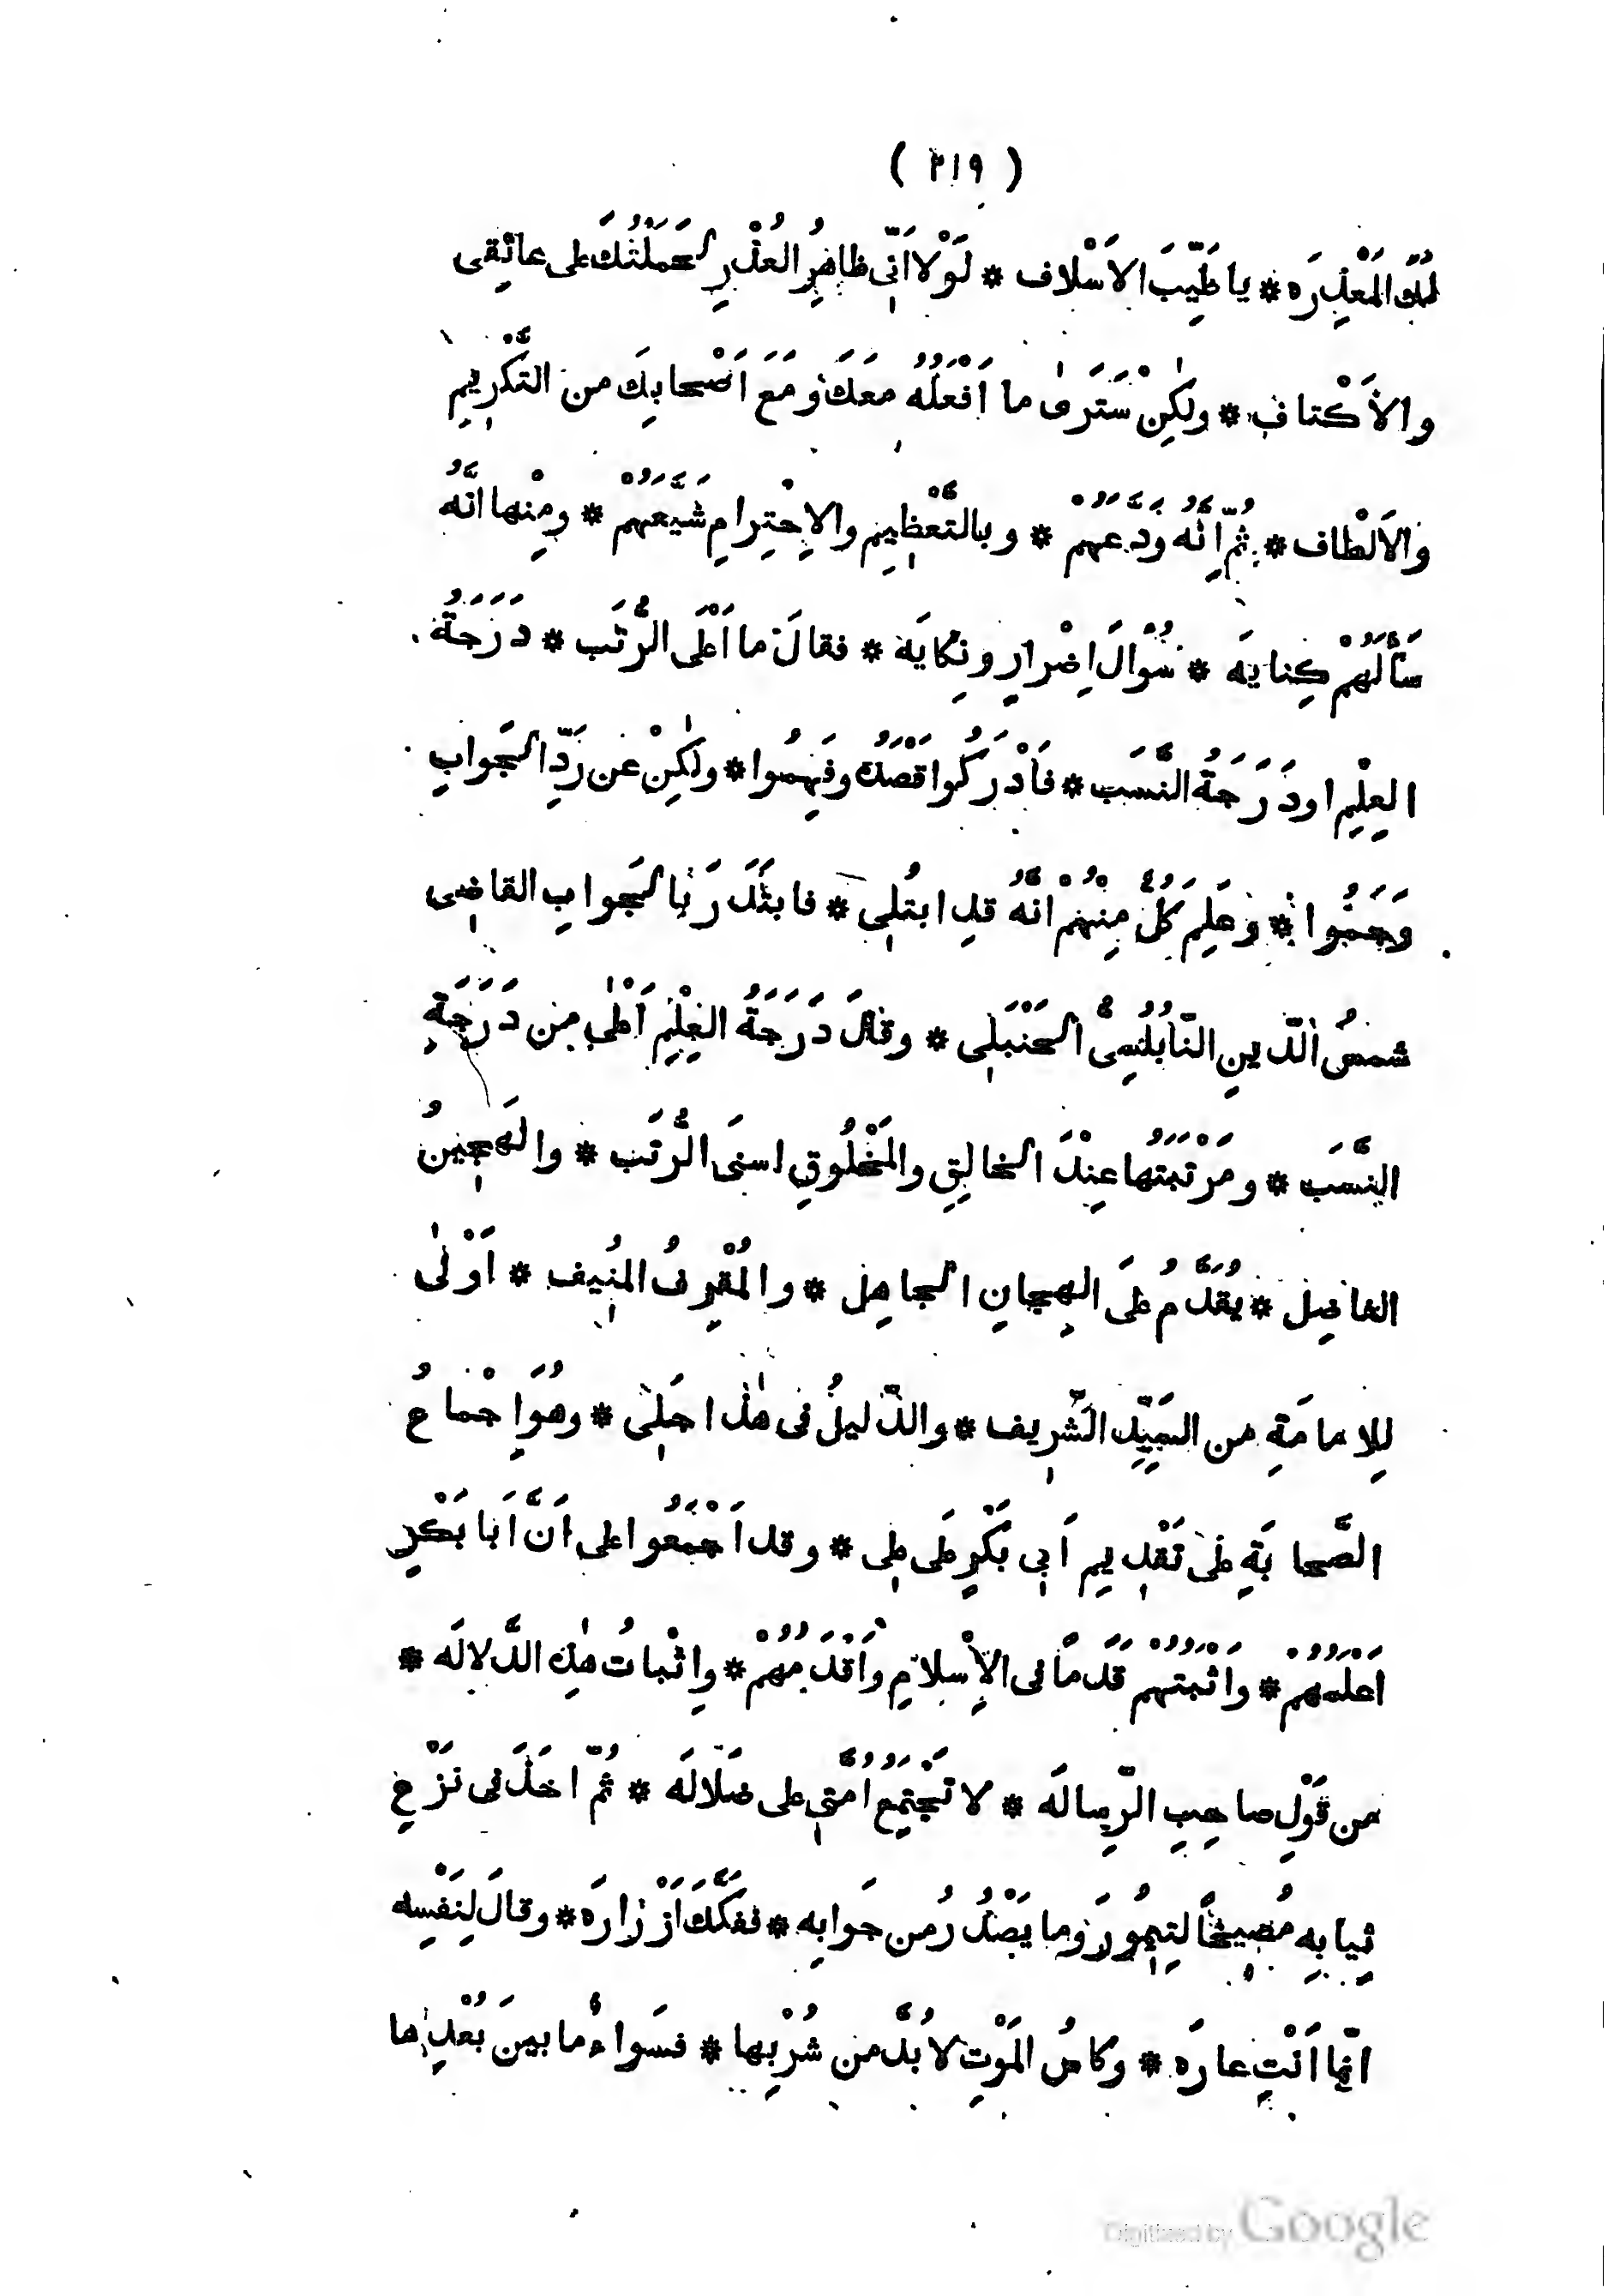 ( ٢١٩ )
لَدَىَّ المَعْذِرَه * يا طَيِّبَ الاَسْلاف * لَوْلا اَنِّى ظاهِرُ العُذْرِ لَحَمَلْتُكَ على عاتِقِى
والاَكْتاف * ولٰكِنْ سَتَرىٰ ما اَفْعَلُهُ معَكَ ومَعَ اَصْحابِكَ من التَّكْرِيمِ
والاَلْطاف * ثُمّ اِنَّهُ وَدَّعَهُمْ * وبالتَّعْظِيمِ والاِحْتِرامِ شَيَّعَهُمْ * ومِنْها انَّهُ
سَأَلَهُمْ كِنايَه * سُؤالَ اِضْرارٍ ونِكايَه * فقالَ ما اَعْلَى الرُّتَب * دَرَجَةُ
العِلْمِ او دَرَجَةُ النَّسَب * فاَدْرَكُوا قَصْدَهُ وفَهِمُوا * ولٰكِنْ عن رَدِّ الجَوابِ
وَجَمُوا * وعَلِمَ كُلٌّ مِنْهُم انَّهُ قدِ ابتُلِى * فابتَدَرَ بالجَوابِ القاضِى
شمسُ الدّينِ النّابُلُسِىُّ الحَنْبَلِى * وقالَ دَرَجَةُ العِلْمِ اَعْلىٰ مِن دَرَجَةِ
النَّسَب * ومَرْتَبَتُها عِنْدَ الخالِقِ والمَخْلُوقِ اسنَى الرُّتَب * والهَجِينُ
الفاضِل * يُقَدَّمُ علَى الهِجانِ الجاهِل * والمُقْرِفُ المُنِيف * اَوْلىٰ
لِلامامَةِ من السَيِّدِ الشَّرِيف * والدّليلُ فى هٰذا جَلِى * وهُوَ اِجْماعُ
الصَّحابَةِ على تَقْدِيمِ اَبِى بَكْرٍ علَى علِى * وقد اَجْمَعُوا على اَنَّ اَبا بَكْرٍ
اَعْلَمُهُمْ * واَثْبَتُهُمْ قَدَماً فى الاِسْلامِ واَقْدَمُهُمْ * واِثْباتُ هٰذِهِ الدَّلالَه *
من قَوْلِ صاحِبِ الرِّسالَه * لا تَجْتَمِعُ اُمَّتِى على ضَلالَه * ثُمّ اخَذَ فى نَزْعِ
ثِيابِه مُصِيخاً لتِيمُورَ وما يَصْدُرُ من جَوابِه * ففَكَّكَ اَزْرارَه * وقالَ لِنَفْسِه
انّما اَنْتِ عارَه * وكاسُ المَوْتِ لا بُدَّ من شُرْبِها * فسَواءٌ ما بينَ بُعْدِها
Digitized by Google